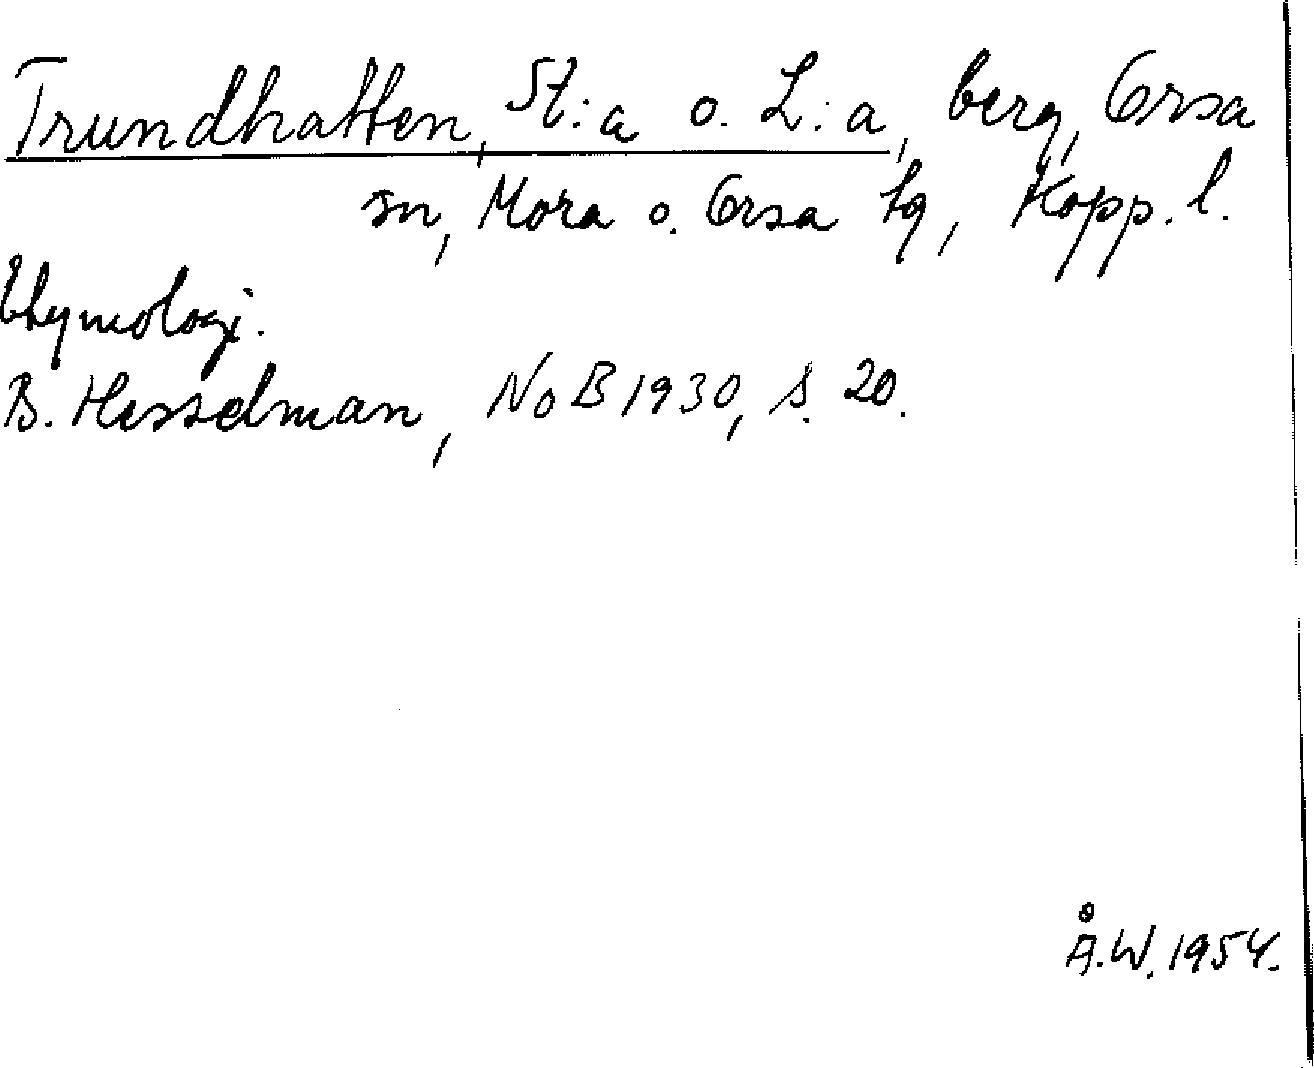 Trundhatten, St:a o. L:a, berg, Orsa
sn, Mora o. Orsa tg, Kopp. l.
Etymologi.
B. Hesselman, NoB 1930, s. 20.
Å.W. 1954.